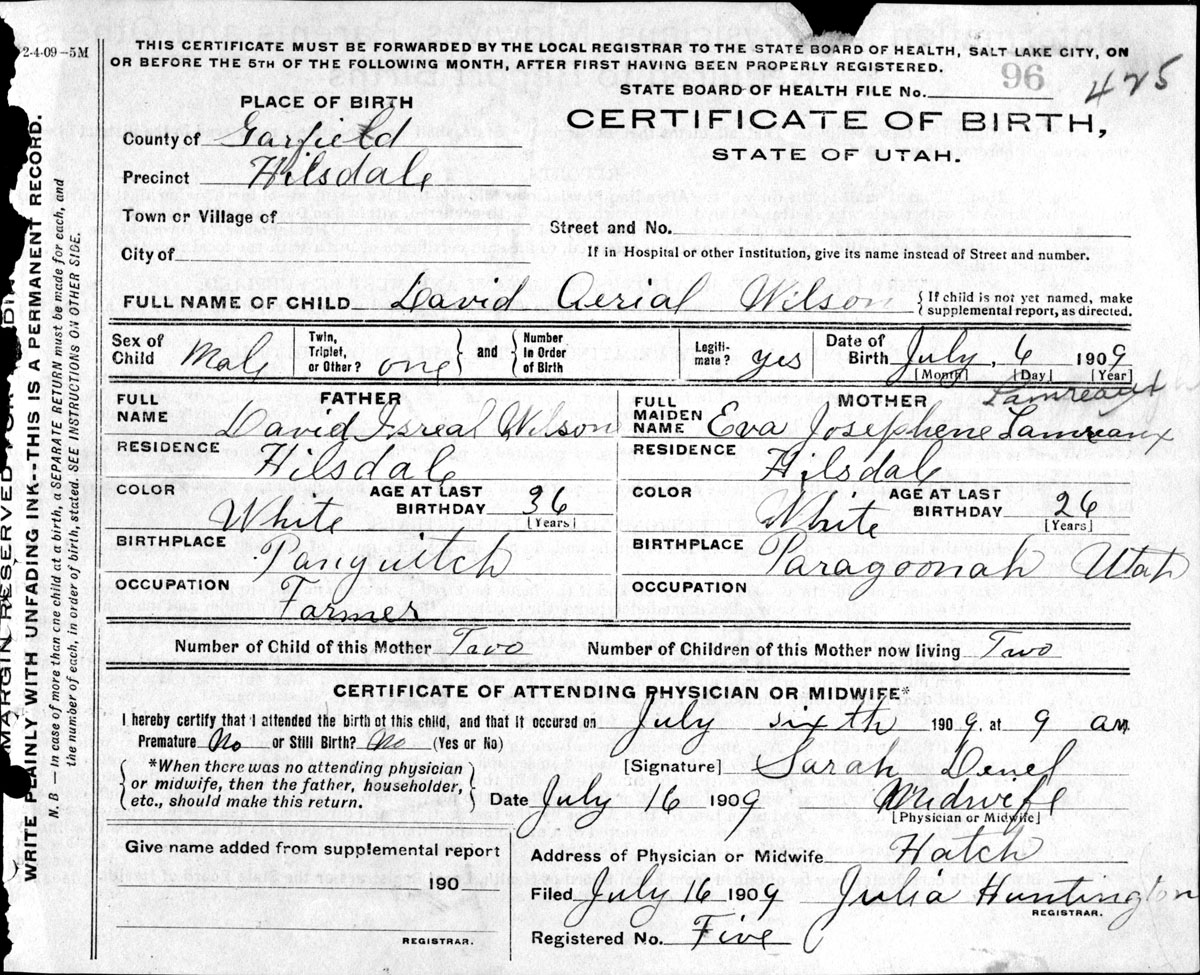 2-4-09-5M
THIS CERTIFICATE MUST BE FORWARDED BY THE LOCAL REGISTRAR TO THE STATE BOARD OF HEALTH, SALT LAKE CITY, ON
OR BEFORE THE 5TH OF THE FOLLOWING MONTH, AFTER FIRST HAVING BEEN PROPERLY REGISTERED.
STATE BOARD OF HEALTH FILE No. 96 425
PLACE OF BIRTH
CERTIFICATE OF BIRTH,
STATE OF UTAH.
County of Garfield
Precinct Hilsdale
Town or Village of
Street and No.
City of
If in Hospital or other Institution, give its name instead of Street and number.
FULL NAME OF CHILD David Aerial Wilson { If child is not yet named, make
supplemental report, as directed.
Sex of Child Male Twin, Triplet, or Other? one and Number In Order of Birth Legiti-mate? yes Date of Birth July, 6 1909
[Month] [Day] [Year]
FATHER
FULL NAME David Isreal Wilson
RESIDENCE Hilsdale
COLOR White AGE AT LAST BIRTHDAY 36 [Years]
BIRTHPLACE Panguitch
OCCUPATION Farmer
MOTHER Lamreaux
FULL MAIDEN NAME Eva Josephene Lamreaux
RESIDENCE Hilsdale
COLOR White AGE AT LAST BIRTHDAY 26 [Years]
BIRTHPLACE Paragoonah Utah
OCCUPATION
Number of Child of this Mother Two Number of Children of this Mother now living Two
CERTIFICATE OF ATTENDING PHYSICIAN OR MIDWIFE*
I hereby certify that I attended the birth of this child, and that it occured on July sixth 1909, at 9 am
Premature No or Still Birth? No (Yes or No)
*When there was no attending physician
or midwife, then the father, householder,
etc., should make this return.
[Signature] Sarah Denel
Date July 16 1909 Midwife
[Physician or Midwife]
Give name added from supplemental report
190
REGISTRAR.
Address of Physician or Midwife Hatch
Filed July 16 1909 Julia Huntington
REGISTRAR.
Registered No. Five
MARGIN RESERVED FOR
WRITE PLAINLY WITH UNFADING INK--THIS IS A PERMANENT RECORD.
N. B. — In case of more than one child at a birth, a SEPARATE RETURN must be made for each, and
the number of each, in order of birth, stated. SEE INSTRUCTIONS ON OTHER SIDE.